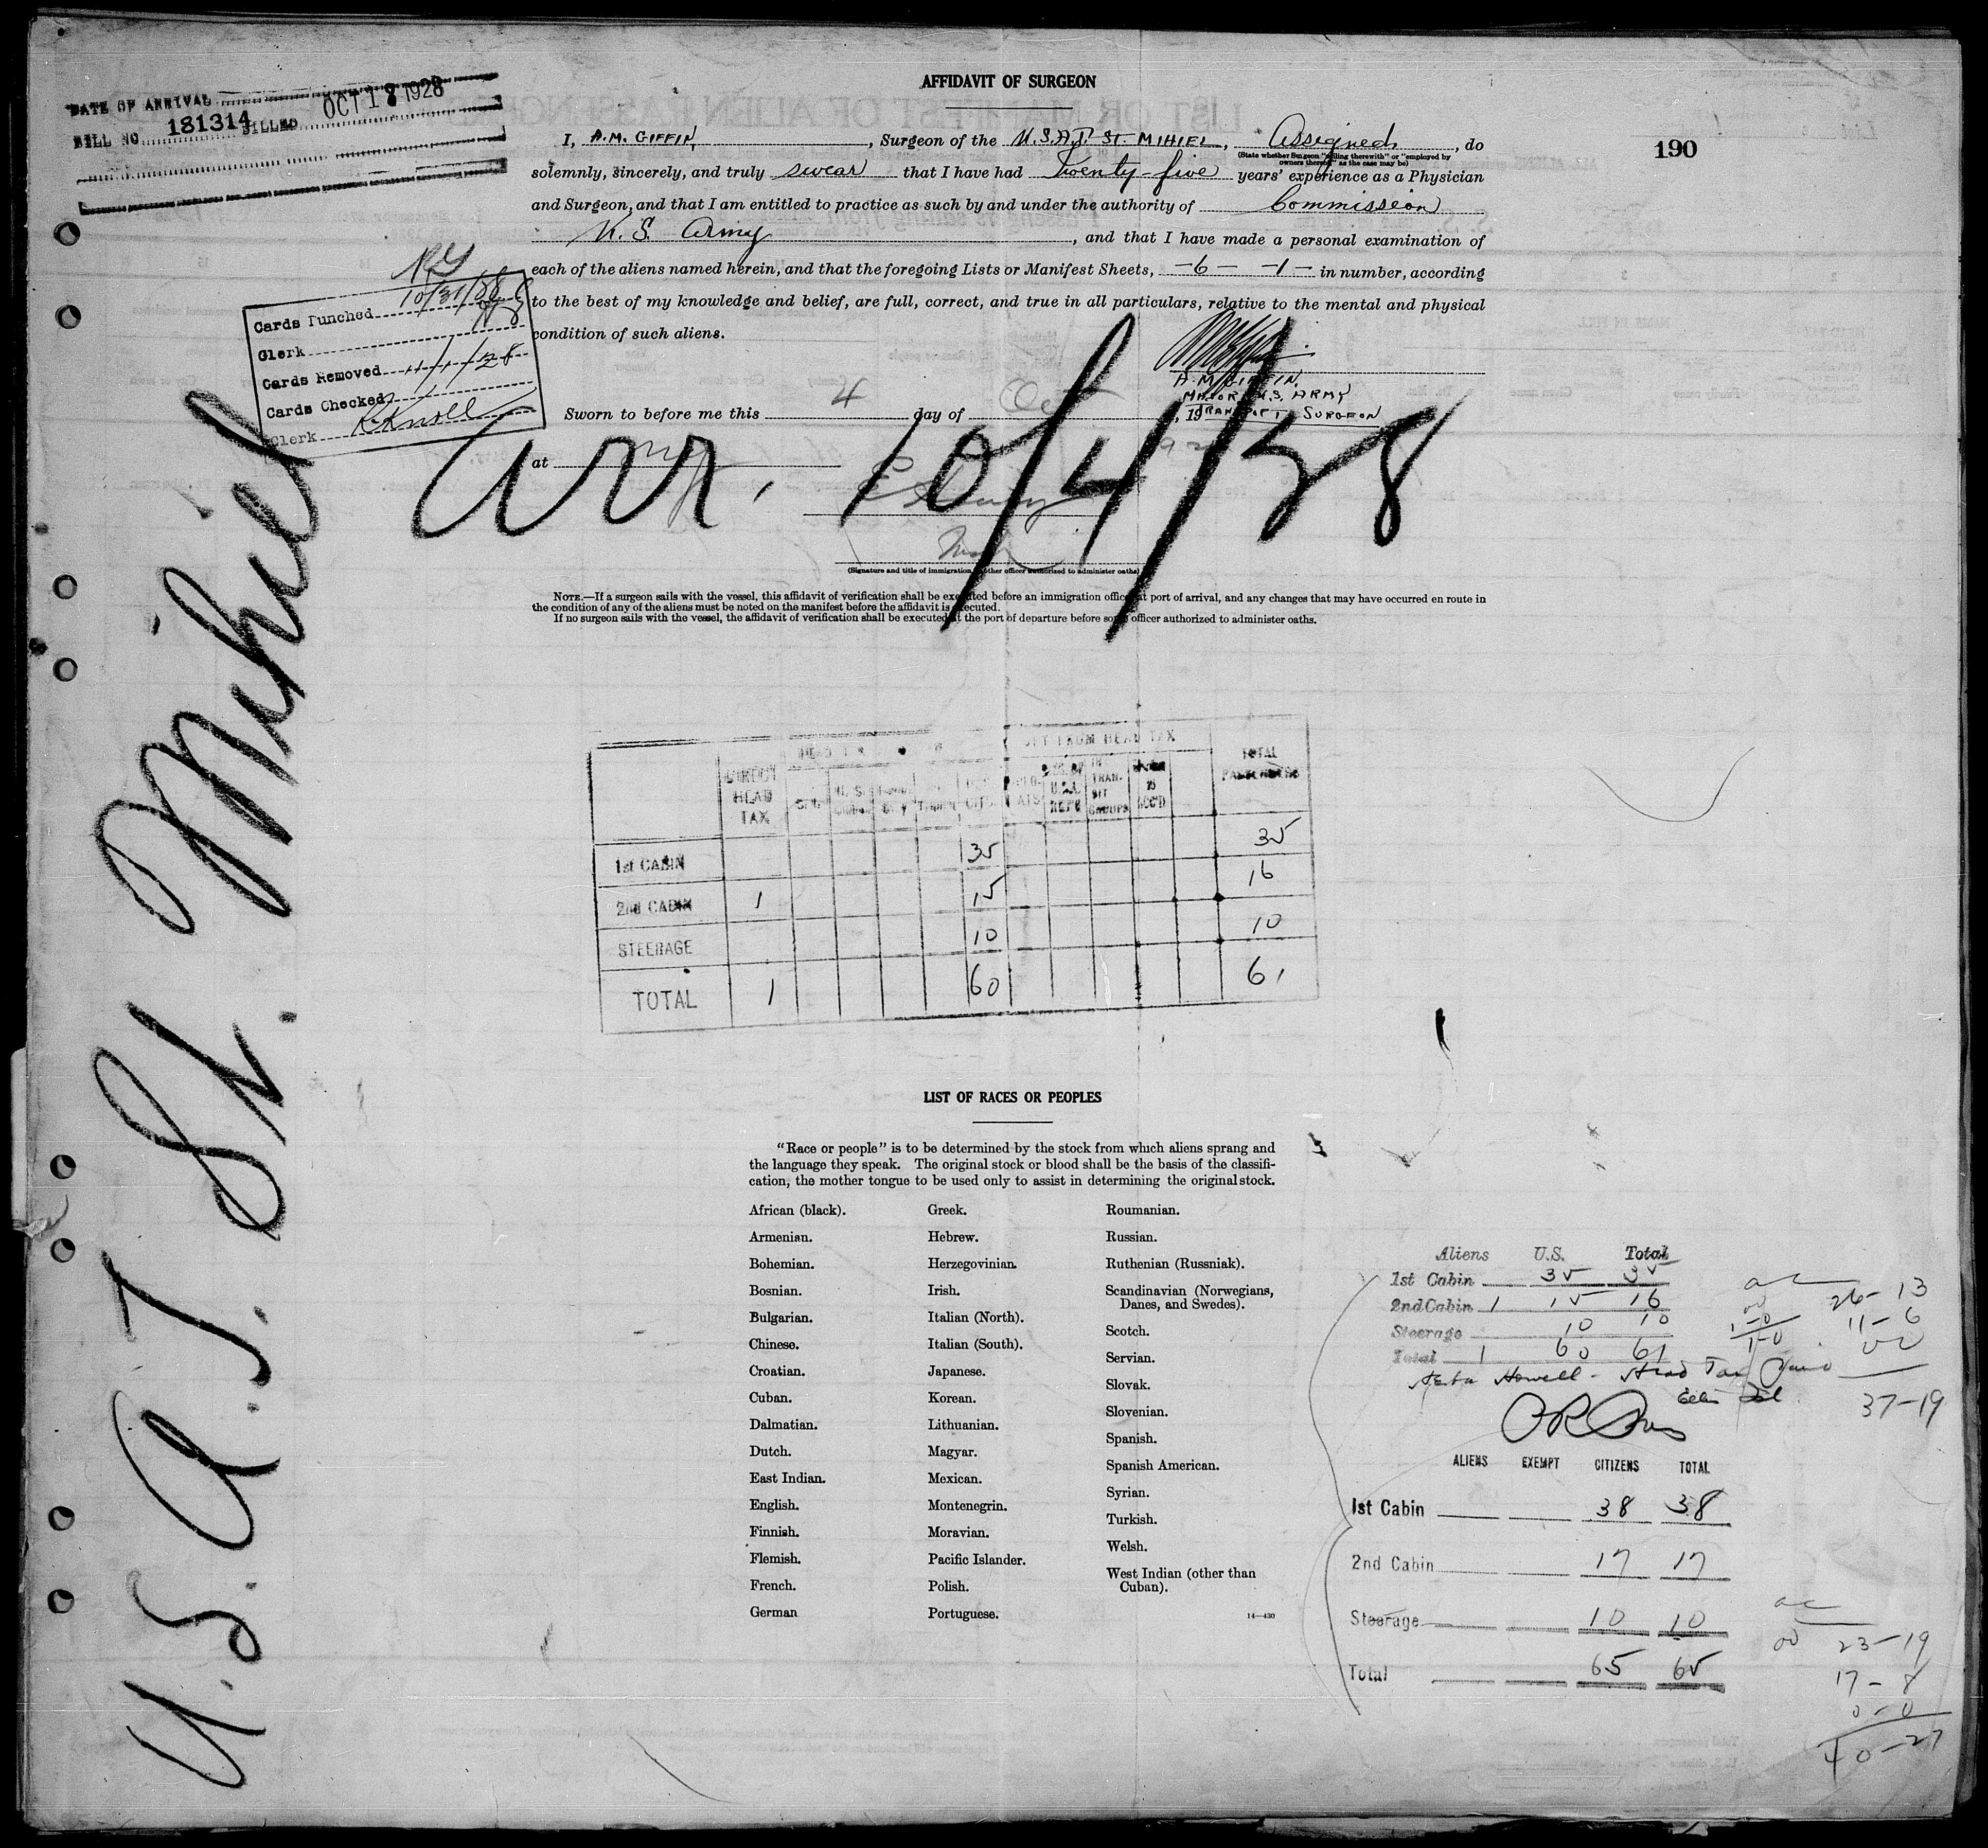 AFFIDAVIT OF SURGEON
DATE OF ARRIVAL
OCT 1 1928
BILL NO 181314 BILLED
190
I, A.M. GIFFIN, , Surgeon of the U.S.A.T. ST. MIHIEL , Assigned , do
(State whether Surgeon "sailing therewith" or "employed by owners thereof" as the case may be)
solemnly, sincerely, and truly swear that I have had Twenty-five years' experience as a Physician
and Surgeon, and that I am entitled to practice as such by and under the authority of Commission
U.S. Army , and that I have made a personal examination of
each of the aliens named herein, and that the foregoing Lists or Manifest Sheets, -6- -1- in number, according
to the best of my knowledge and belief, are full, correct, and true in all particulars, relative to the mental and physical
condition of such aliens.
Cards Punched 10/31/28
Clerk
Cards Removed 11/1/28
Cards Checked
Clerk
A.M. GIFFIN,
MAJOR U.S. ARMY
TRANSPORT SURGEON
Sworn to before me this 4 day of Oct , 19
at
Arr. 10/4/28
(Signature and title of immigration or other officer authorized to administer oaths)
NOTE.—If a surgeon sails with the vessel, this affidavit of verification shall be executed before an immigration officer at port of arrival, and any changes that may have occurred en route in
the condition of any of the aliens must be noted on the manifest before the affidavit is executed.
If no surgeon sails with the vessel, the affidavit of verification shall be executed at the port of departure before some officer authorized to administer oaths.
U.S.A.T. St. Mihiel
HEAD TAX
DIRECT HEAD TAX
TRANSIT GROUPS
TOTAL PASSENGERS
1st CABIN 35 35
2nd CABIN 1 15 16
STEERAGE 10 10
TOTAL 1 60 61
LIST OF RACES OR PEOPLES
"Race or people" is to be determined by the stock from which aliens sprang and
the language they speak. The original stock or blood shall be the basis of the classifi-
cation, the mother tongue to be used only to assist in determining the original stock.
African (black).
Armenian.
Bohemian.
Bosnian.
Bulgarian.
Chinese.
Croatian.
Cuban.
Dalmatian.
Dutch.
East Indian.
English.
Finnish.
Flemish.
French.
German
Greek.
Hebrew.
Herzegovinian.
Irish.
Italian (North).
Italian (South).
Japanese.
Korean.
Lithuanian.
Magyar.
Mexican.
Montenegrin.
Moravian.
Pacific Islander.
Polish.
Portuguese.
Roumanian.
Russian.
Ruthenian (Russniak).
Scandinavian (Norwegians,
Danes, and Swedes).
Scotch.
Servian.
Slovak.
Slovenian.
Spanish.
Spanish American.
Syrian.
Turkish.
Welsh.
West Indian (other than
Cuban).
14—430
Aliens U.S. Total
1st Cabin 35 35
2nd Cabin 1 15 16
Steerage 10 10
Total 1 60 61
Howell - Head Tax
26-13
11-6
37-19
ALIENS EXEMPT CITIZENS TOTAL
1st Cabin 38 38
2nd Cabin 17 17
Steerage 10 10
Total 65 65
23-19
17-8
0-0
40-27